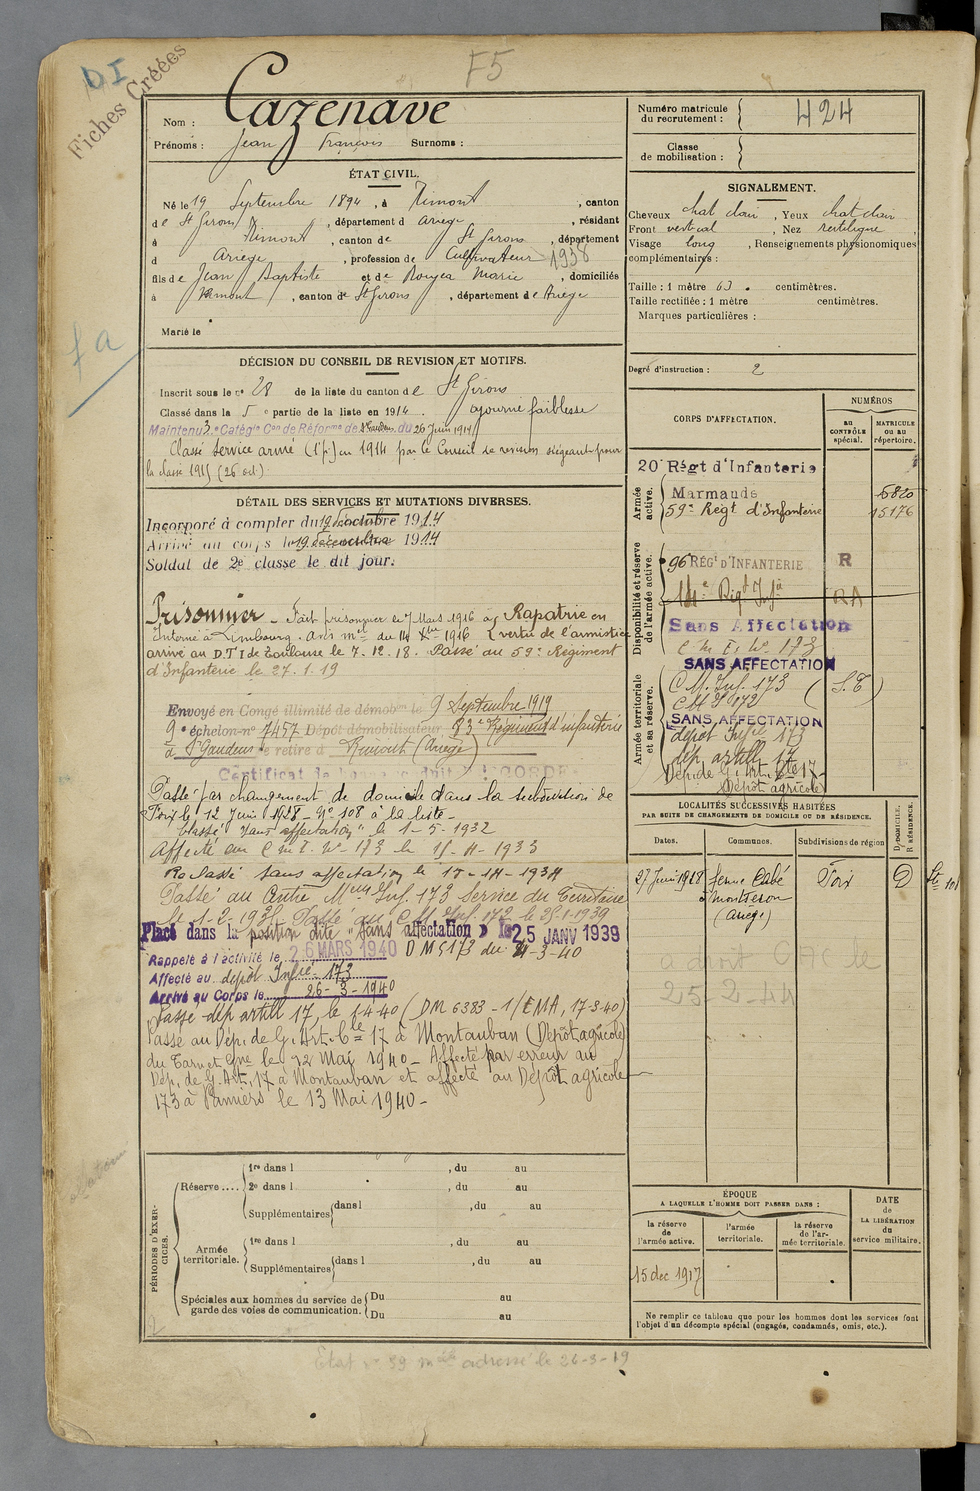 DI
Fiches Créées
F5
Nom : Cazenave
Prénoms : Jean François Surnoms :
Numéro matricule du recrutement : 424
Classe de mobilisation :
ÉTAT CIVIL.
Né le 19 Septembre 1894, à Rimont, canton
de St Girons, département d Ariège, résidant
à Rimont, canton de St Girons, département
d Ariège, profession de Cultivateur 1938
fils de Jean Baptiste et de Rougea Marie, domiciliés
à Rimont, canton de St Girons, département de Ariège
Marié le
SIGNALEMENT.
Cheveux chat clair, Yeux chat clair
Front vertical, Nez rectiligne,
Visage long, Renseignements physionomiques
complémentaires :
Taille : 1 mètre 63 centimètres.
Taille rectifiée : 1 mètre centimètres.
Marques particulières :
Degré d'instruction : 2
fa
DÉCISION DU CONSEIL DE REVISION ET MOTIFS.
Inscrit sous le no 28 de la liste du canton de St Girons
Classé dans la 5e partie de la liste en 1914. ajourné faiblesse
Maintenu 3e Catégie Con de Réforme de St Gaudens du 26 juin 1914
Classé service armé (1e p.) en 1914 par le Conseil de revision siégeant pour
la classe 1915 (26 oct.)
DÉTAIL DES SERVICES ET MUTATIONS DIVERSES.
Incorporé à compter du 19 1914
Arrivé au corps le 19 décembre 1914
Soldat de 2e classe le dit jour.
Prisonnier - Fait prisonnier le 7 Mars 1916 Rapatrié en
Interné à Limbourg. Avis mel du 14 Xbre 1916 (vertu de l'armistice
arrivé au D.T.I de Toulouse le 7.12.18. Passé au 59e Régiment
d'Infanterie le 27.1.19
Envoyé en Congé illimité de démobon le 9 Septembre 1919
9e échelon no 7457 Dépôt démobilisateur 83e Régiment d'infanterie
à St Gaudens se retire à Rimont (Ariège)
Certificat de bonne conduite ACCORDÉ
Passé par changement de domicile dans la subdivision de
Foix le 12 Juin 1928 - No 108 à la liste -
Classé "sans affectation" le 1-5-1932
Affecté au C.M.I. No 173 le 15-4-1933
Re Classé sans affectation le 15-14-1934
Passé au Centre Mque Inf. 173 Service du Territoire
le 1-2-1938. Passé au C.M. Inf. 172 le 25-1-1939
Placé dans la position dite "sans affectation" le 25 JANV 1939
Rappelé à l'activité le 26 MARS 1940 D M 5173 du 21-3-40
Affecté au dépôt Infie 173
Arrivé au Corps le 26-3-1940
Passé dép artill 17, le 1-4-40 (DM 6383-1/EMA, 17-3-40)
Passé au Dép. de G. Art. 17 à Montauban (Dépôt agricole)
du Tarn et Gne le 12 Mai 1940 - Affecté par erreur au
Dép. de G. Art. 17 à Montauban et affecté au Dépôt agricole
173 à Pamiers le 13 Mai 1940 -
CORPS D'AFFECTATION.
NUMÉROS
au CONTRÔLE spécial.
MATRICULE ou au répertoire.
Armée active.
20e Régt d'Infanterie
Marmande 6820
59e Régt d'Infanterie 15176
Disponibilité et réserve de l'armée active.
96 RÉGt D'INFANTERIE R
14e Régt Infie RA
Sans Affectation
C M I No 173
SANS AFFECTATION
Armée territoriale et sa réserve.
C.M. Inf. 173 (S.T)
C M I 172
SANS AFFECTATION
depôt Infie 173
dép. artill 17
Dép. de G. Art. 17 -
Dépôt agricole
LOCALITÉS SUCCESSIVES HABITÉES
PAR SUITE DE CHANGEMENTS DE DOMICILE OU DE RÉSIDENCE.
Dates. Communes. Subdivisions de région D. DOMICILE. R. RÉSIDENCE.
27 Juin 1928 ferme Cubé Foix D
à Montseron
(Ariège)
a droit CAC le
25-2-44
PÉRIODES D'EXERCICES.
Réserve....
1re dans l , du au
2e dans l , du au
Supplémentaires dans l , du au
Armée territoriale.
1re dans l , du au
Supplémentaires dans l , du au
Spéciales aux hommes du service de garde des voies de communication.
Du au
Du au
ÉPOQUE
A LAQUELLE L'HOMME DOIT PASSER DANS :
la réserve de l'armée active.
l'armée territoriale.
la réserve de l'armée territoriale.
DATE de LA LIBÉRATION du service militaire.
15 dec 1917
Ne remplir ce tableau que pour les hommes dont les services font
l'objet d'un décompte spécial (engagés, condamnés, omis, etc.).
Etat no 39 adressé le 26-3-19